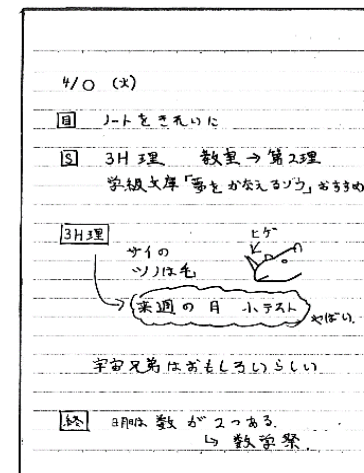 4/○ (火)
目 ノートをきれいに
S 3H 理 教室→第2理
学級文庫「夢をかなえるゾウ」おすすめ
3H理
ヒゲ
サイの
ツノは毛
来週の月 小テスト
やばい.
宇宙兄弟はおもしろいらしい
終 明日は 数が2つある.
↳ 数学祭.